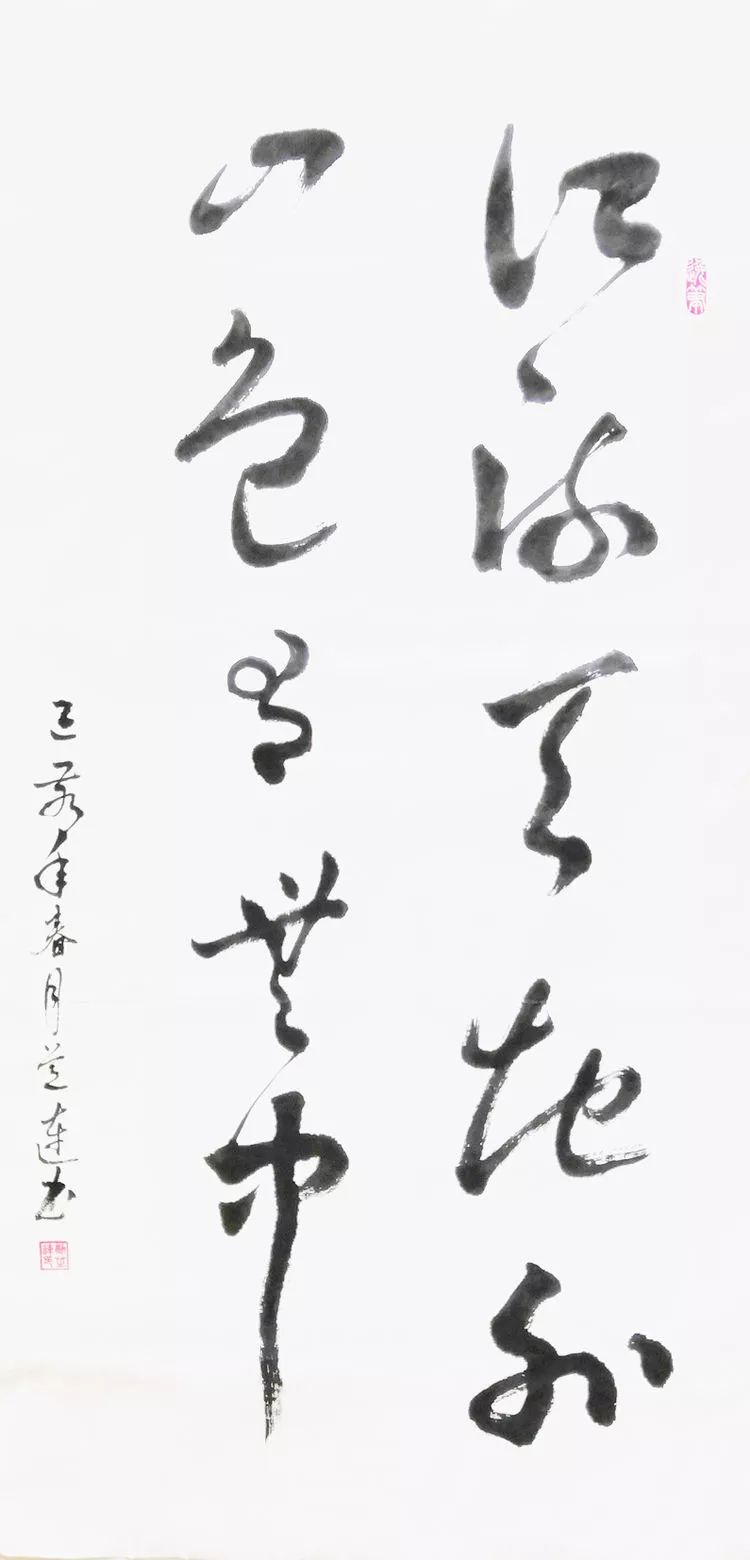 江流天地外
山色有无中
己亥年春月兰莲书